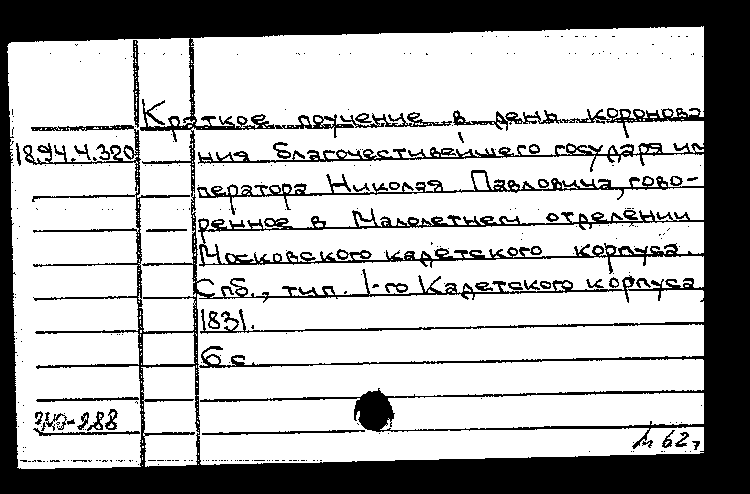 Краткое поучение в день коронова
18.94.4.320 ния благочестивейшего государя им
ператора Николая Павловича, гово-
ренное в Малолетнем отделении
Московского кадетского корпуса.
Спб., тип. 1-го Кадетского корпуса,
1831.
6 с.
ЗМО-288
М 62